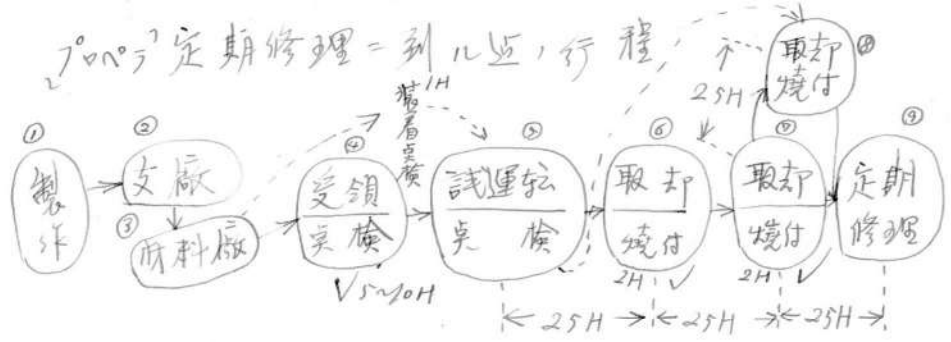 プロペラノ定期修理ニ到ル迄ノ行程
① 製作
② 支廠
③ 材料廠
④ 受領
点検
√5~10H
装着点検
1H
⑤ 試運転
点検
⑥ 取却
焼付
2H √
⑦ 取却
焼付
2H √
25H
⑧ 取却
焼付
⑨ 定期
修理
25H
25H
25H